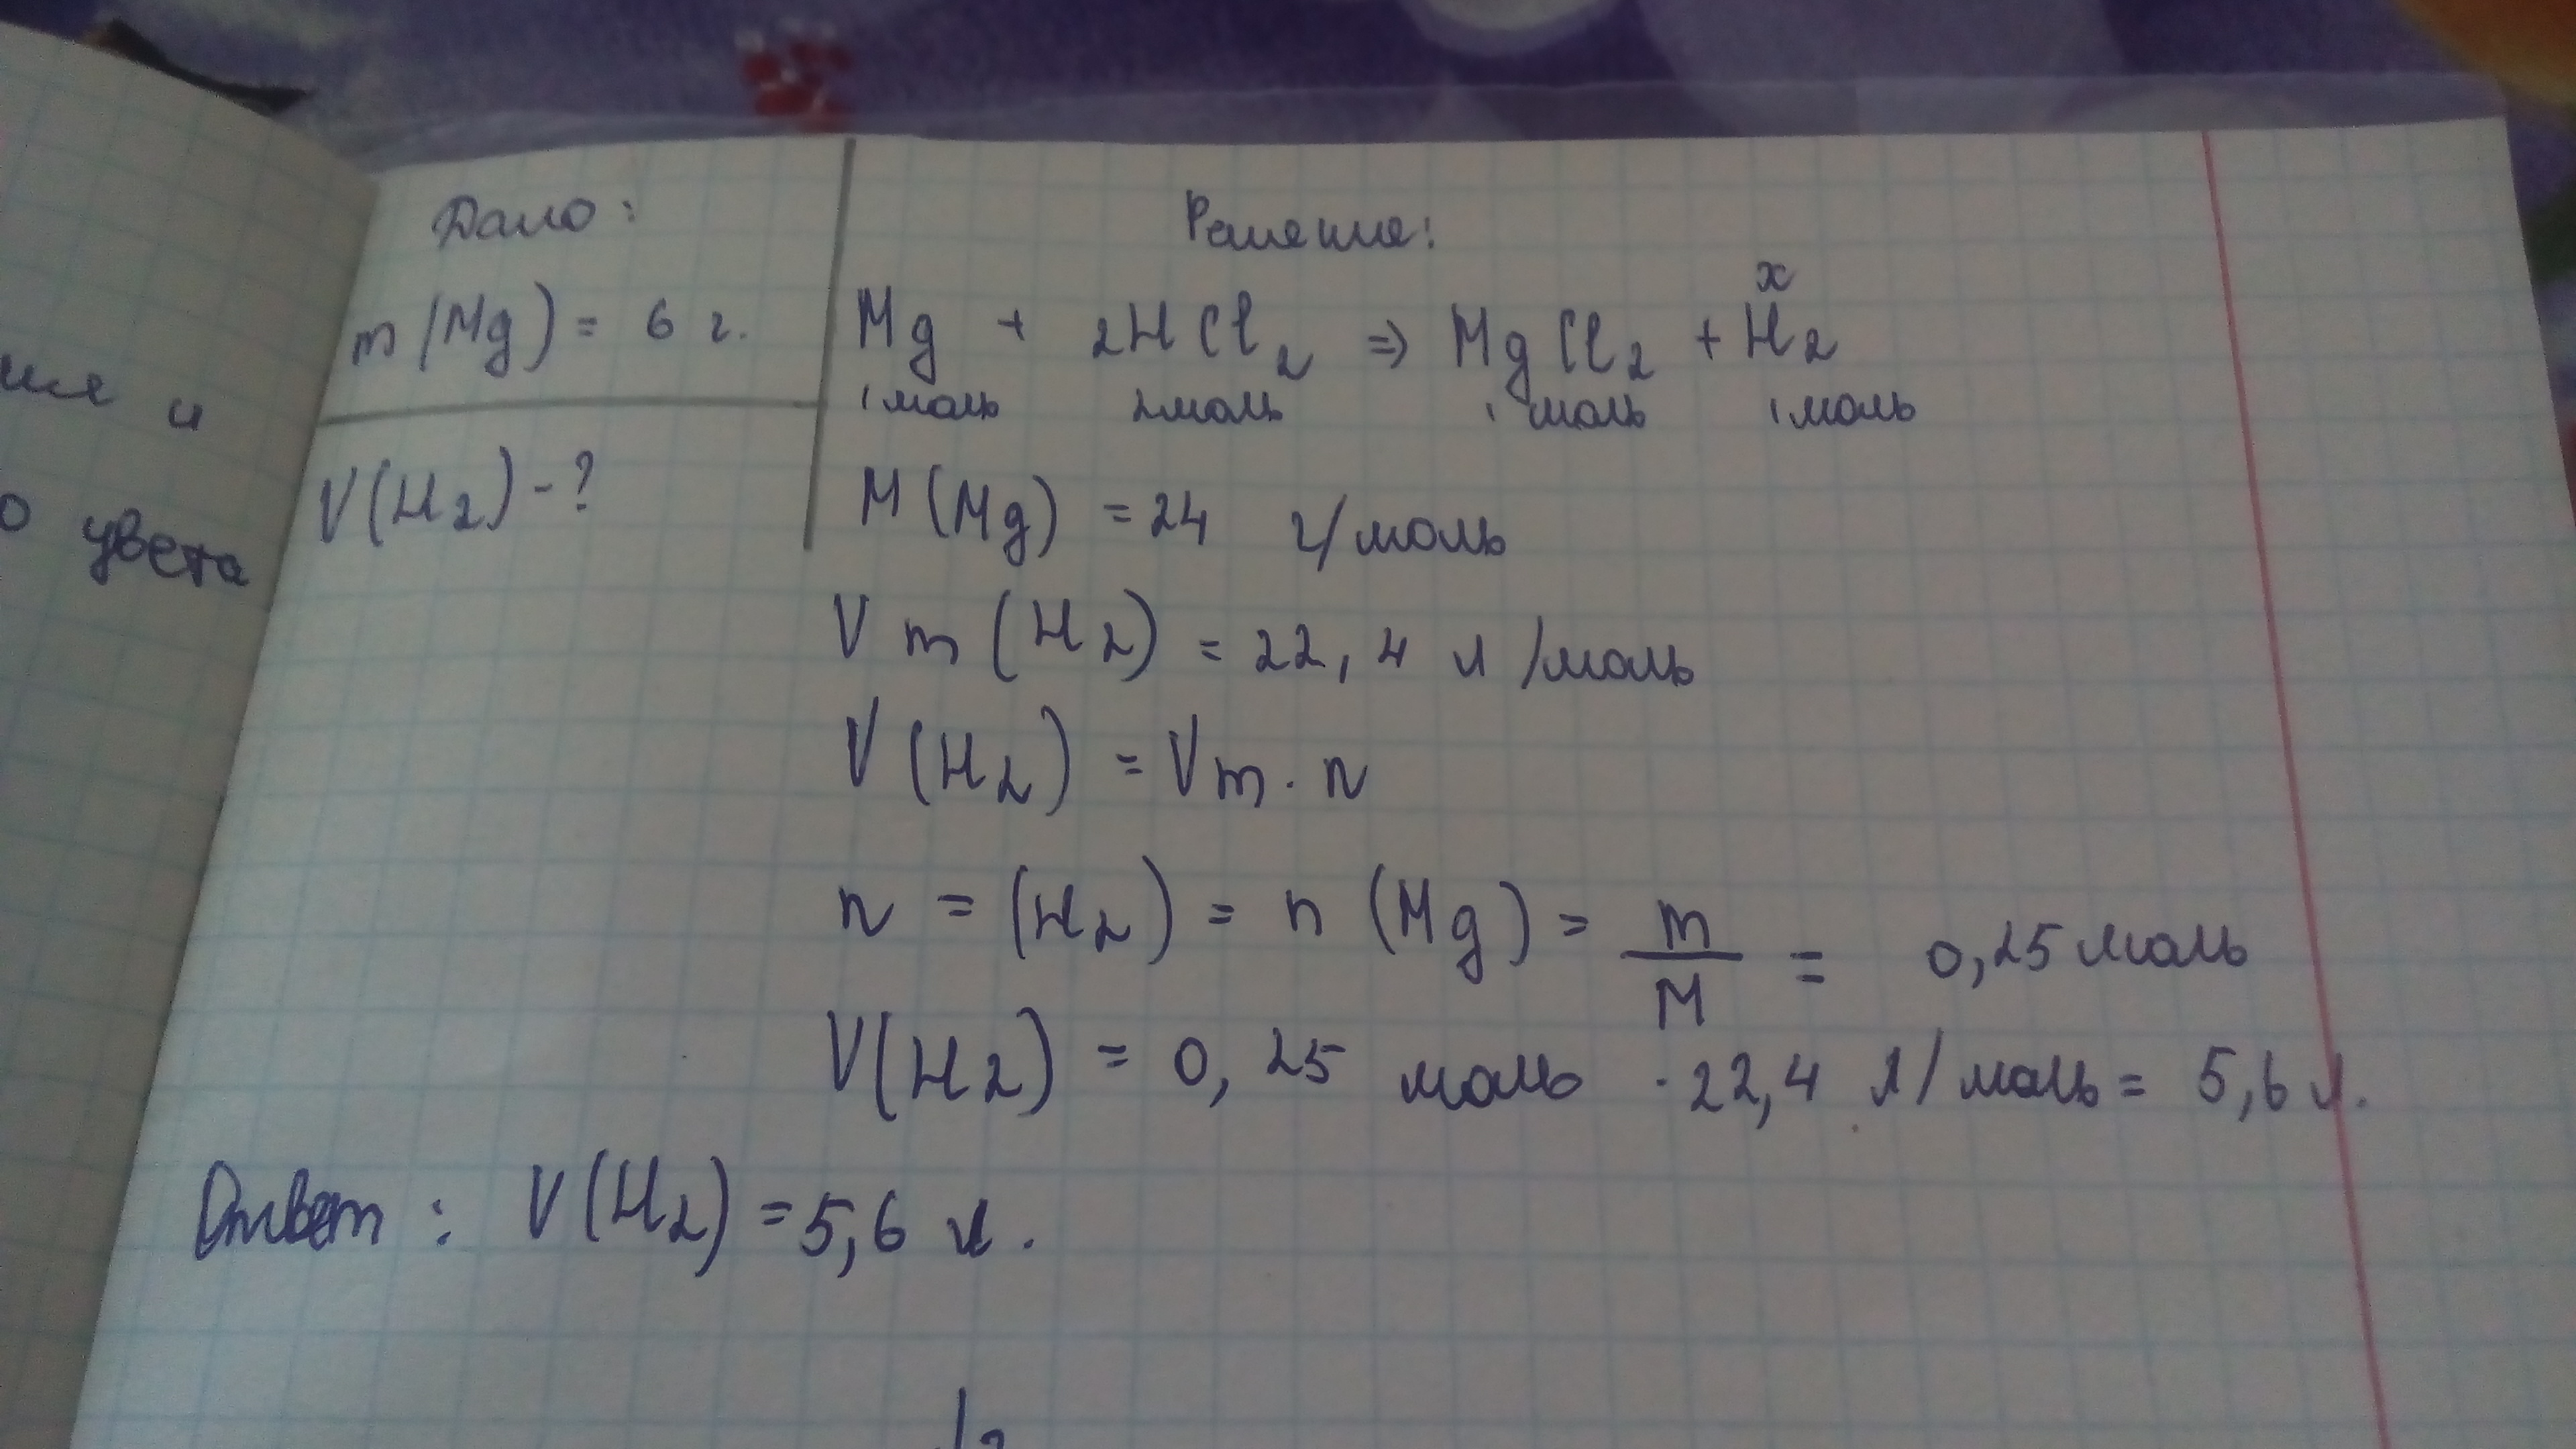 Дано:
m(Mg) = 6 г.
V(H2) - ?
Решение:
x
Mg + 2HCl2 => MgCl2 + H2
1моль 2моль 1 моль 1моль
M(Mg) = 24 г/моль
Vm(H2) = 22,4 л/моль
V(H2) = Vm · n
n = (H2) = n (Mg) = m/M = 0,25 моль
V(H2) = 0,25 моль · 22,4 л/моль = 5,6 л.
Ответ: V(H2) = 5,6 л.
и
цвета